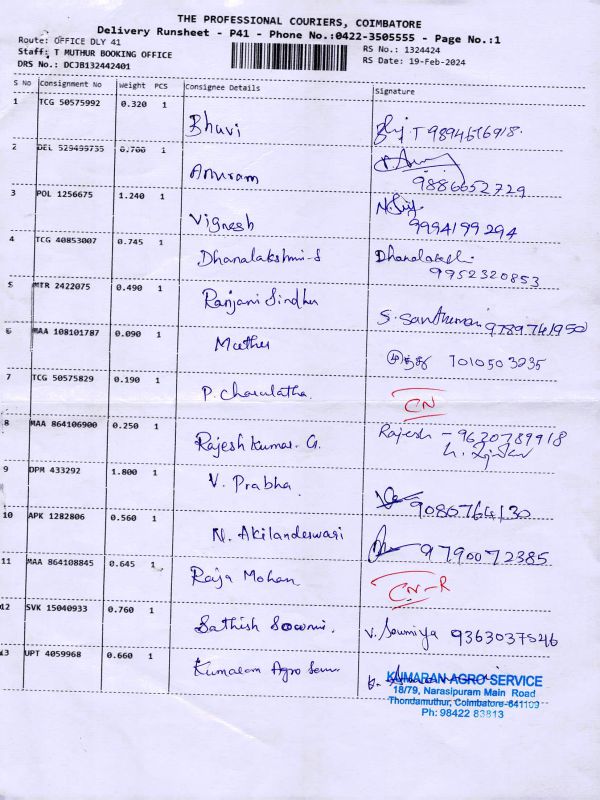 THE PROFESSIONAL COURIERS, COIMBATORE
Delivery Runsheet - P41 - Phone No.:0422-3505555 - Page No.:1
Route: OFFICE DLY 41 RS No.: 1324424
Staff: T MUTHUR BOOKING OFFICE RS Date: 19-Feb-2024
DRS No.: DCJB132442401
S No Consignment No Weight PCS Consignee Details Signature
1 TCG 50575992 0.320 1 Bhuvi
2 DEL 529499735 0.700 1 Anuram 9886652729
3 POL 1256675 1.240 1 Vignesh 9994199294
4 TCG 40853007 0.745 1 Dhanalakshmi-S 9952320853
5 MTR 2422075 0.490 1 Ranjani Sindhu 9789741950
6 MAA 108101787 0.090 1 Muthu முத்து 7010503235
7 TCG 50575829 0.190 1 P. Charulatha. CN
8 MAA 864106900 0.250 1 Rajesh Kumar. G. Rajesh - 9630789918
9 DPM 433292 1.800 1 V. Prabha 9080764130
10 APK 1282806 0.560 1 N. Akilandeswari 9790072385
11 MAA 864108845 0.645 1 Raja Mohan CN-R
12 SVK 15040933 0.760 1 Sathish V. Soumiya 9363037546
13 UPT 4059968 0.660 1 Kumaran Agro
KUMARAN AGRO SERVICE
18/79, Narasipuram Main Road
Thondamuthur, Coimbatore-641109
Ph: 98422 83813